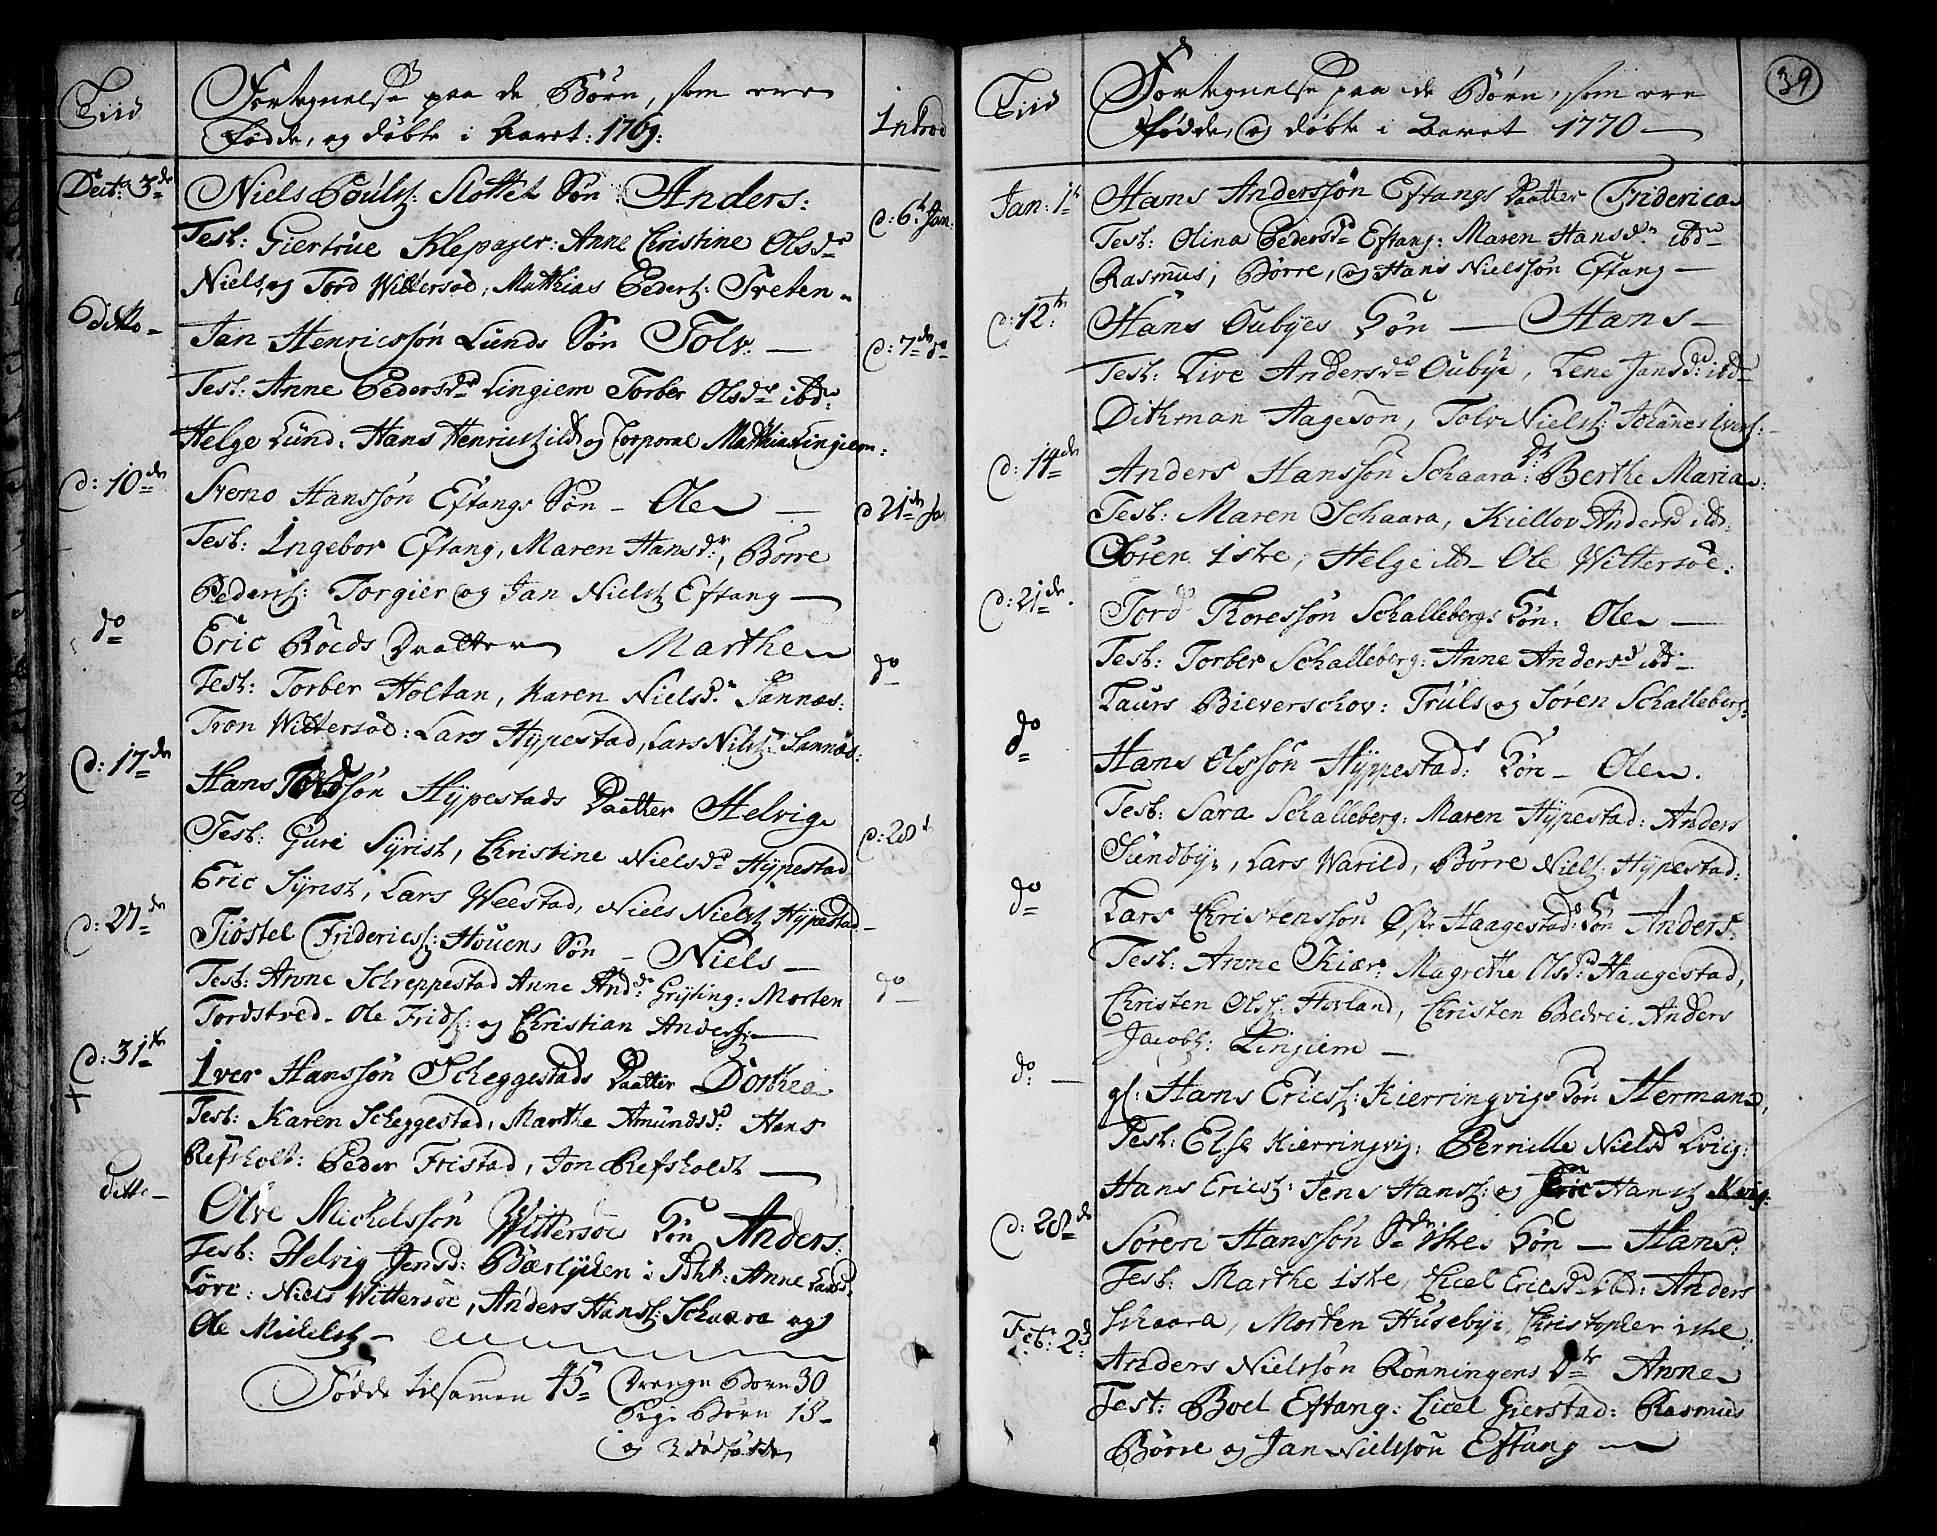 Tiid
Fortegnelse paa de Børn, som ere
fødde, og døbte i Aaret: 1769:
Introd
Decb: 3de
Niels Poulss: Slottet Søn: Anders:
d: 6t Jan:
Test: Giertrue Klepager: Anne Christine Olsdr
Niels, og Tord Wittersøe, Mathias Peders: Tveten
Ditto
Jan Henricssøn Lunds Søn Tolv.
d: 7de do
Test: Anne Pedersdr Lingiem Torber Olsdr ibd:
Helge Lund: Hans Henrics: ibd og Corporal Mathias Lingiem:
d: 10de
Sveno Hanssøn Eftangs Søn - Ole
d 21de Ja
Test: Ingebor Eftang, Maren Hansdr:, Børre
Peders: Torgier og Jan Niels: Eftang
do
Eric Roeds Daatter Marthe
do
Test: Torber Holtan, Karen Nielsdr Sannæs:
Tron Wittersøe: Lars Hÿpestad, Lars Nils: Sannæs:
d: 17de
Hans Tordsøn Hÿpestads Daatter Helvig
d: 28t
Test: Guri Sÿrist, Christine Nielsdr Hÿpestad
Eric Sÿrist, Lars Weestad, Niels Niels: Hÿpestad
d: 27de
Tiøstel Fridericss: Houens Søn - Niels
do
Test: Anne Schreppestad Anne Andd: Grÿting: Morten
Tordstved. Ole Frids: og Christian Anders:
d: 31te
Iver Hanssøn Scheggestads Daatter Dorthea
Test: Karen Scheggestad, Marthe Amundsdr: Hans
Refsholt: Peder Fristad, Jon Refsholdt
ditto
Olve Michelssøn Wittersøe Søn Anders:
Test: Helvig Jensd: Bærlÿden i Anne
Niels Wittersøe, Anders Hans: Schaara og
Ole Michels:
Fødde tilsamen 45 Drenge Børn 30
Pige Børn 15
og dødfødde
39
Tiid
Fortegnelse paa de Børn, som ere
fødde, og døbte i Aaret 1770
Jan: 1te
Hans Anderssøn Eftangs Daatter Friderica
Test: Olina Pedersdr Eftang: Maren Hansdr ibd
Rasmus, Børre, og Hans Nielssøn Eftang
d: 12te
Hans Oubÿes Søn - Hans
Test: Live Andersdr Oubÿe, Lene Jansd: ibd
Dithman Aageson, Tolv Niels: Johanes Ivers:
d: 14de
Anders Hanssøn Schaara: dr Berthe Maria
Test: Maren Schaara, Kiellov Andersd ibd:
Søren Iske, Helge ibd Ole Wittersøe:
d: 21de
Tord Thoressøn Schallebergs Søn: Ole
Test: Torber Schalleberg: Anne Andersd ibd
Laurs Bieverschov: Truls og Søren Schalleberg:
do
Hans Olssøn Hÿppestad: Søn - Ole
Test: Sara Schalleberg: Maren Hÿpestad: Anders
Sundbÿe, Lars Warild, Børre Niels: Hÿpestad:
do
Lars Christenssøn Østr Haagestad: Søn Anders:
Test: Anne Kiær: Magrethe Olsdr Haugestad,
Christen Olss: Hovland, Christen Bredvei. Anders
Jacobs: Lingiem
do:
gl: Hans Ericss: Kierringvigs Søn Herman
Test: Else Kierringvig: Pernille Nielsd Qvig:
Hans Erics: Jens Hans: og Eric Hans: Kvig:
d: 28de
Søren Hanssøn Iskes Søn - Hans:
Test: Marthe Iske, Cicel Ericsdr ibd: Anders
Schaara, Morten Husebÿe, Christopher iske:
Feb: 2d
Anders Nielssøn Rønningens Dtr Anne
Test: Boel Eftang: Cicel Gierstad: Rasmus
Børre og Jan Nielssøn Eftang